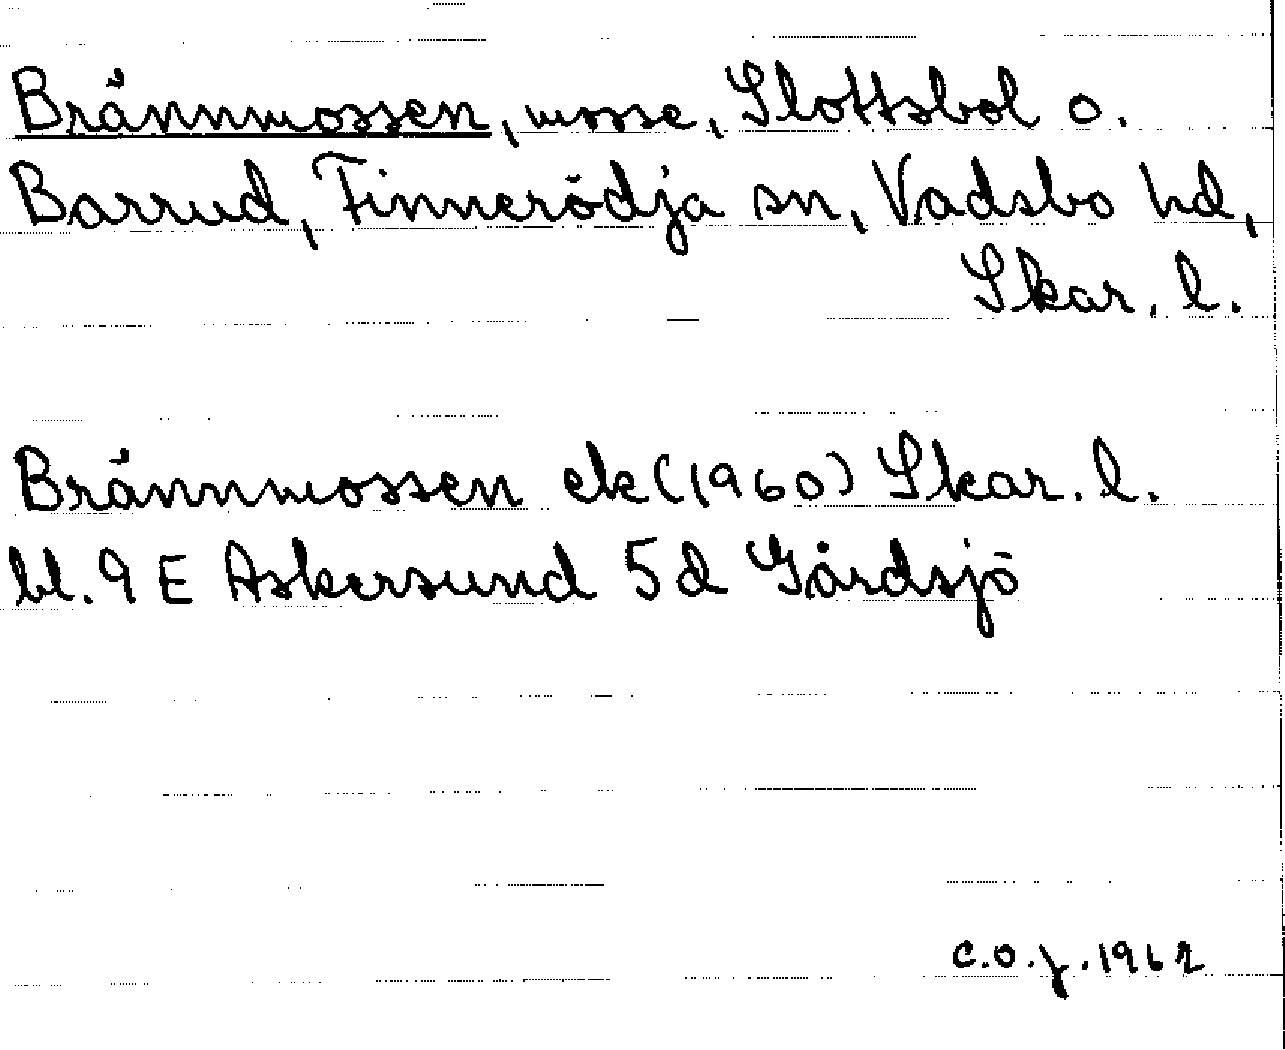 Brännmossen, mosse, Slottsbol o.
Barrud, Finnerödja sn, Vadsbo hd,
Skar. l.
Brännmossen ek (1960) Skar. l.
bl. 9 E Askersund 5 d Gårdsjö
C.O.J. 1962